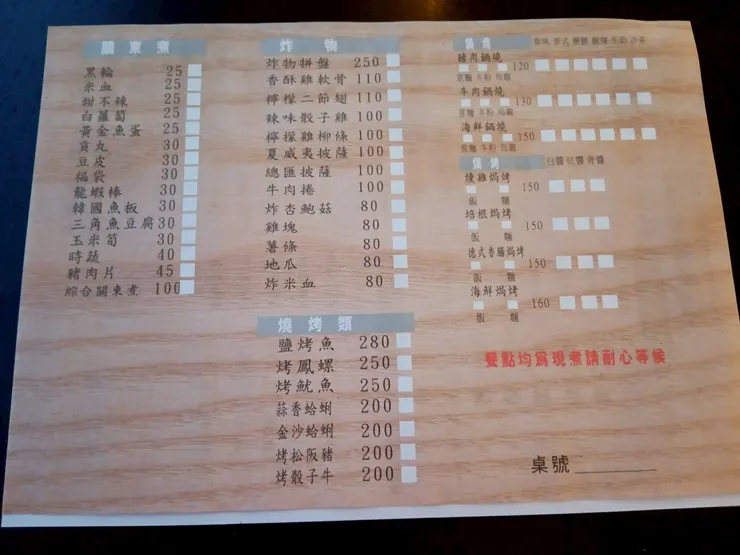 關東煮
黑輪 25
米血 25
甜不辣 25
白蘿蔔 25
黃金魚蛋 25
貢丸 30
豆皮 30
福袋 30
龍蝦棒 30
韓國魚板 30
三角魚豆腐 30
玉米筍 30
時蔬 40
豬肉片 45
綜合關東煮 100
炸物
炸物拼盤 250
香酥雞軟骨 110
檸檬二節翅 110
辣味骰子雞 100
檸檬雞柳條 100
夏威夷披薩 100
總匯披薩 100
牛肉捲 100
炸杏鮑菇 80
雞塊 80
薯條 80
地瓜 80
炸米血 80
燒烤類
鹽烤魚 280
烤鳳螺 250
烤魷魚 250
蒜香蛤蜊 200
金沙蛤蜊 200
烤松阪豬 200
烤骰子牛 200
鍋燒
豬肉鍋燒 120
牛肉鍋燒 130
海鮮鍋燒 150
焗烤 白醬 紅醬 青醬
燻雞焗烤 150
飯 麵
培根焗烤 150
飯 麵
德式香腸焗烤 150
飯 麵
海鮮焗烤 160
飯 麵
餐點均為現煮請耐心等候
桌號